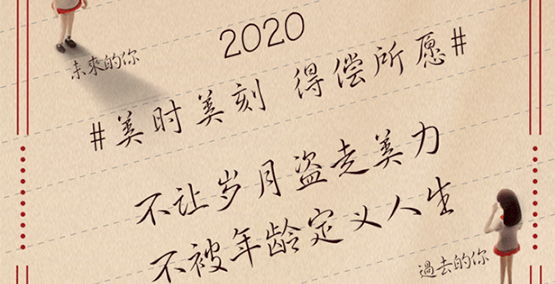 2020
未來的你
#美时美刻 得偿所愿#
不让岁月盗走美力
不被年龄定义人生
過去的你